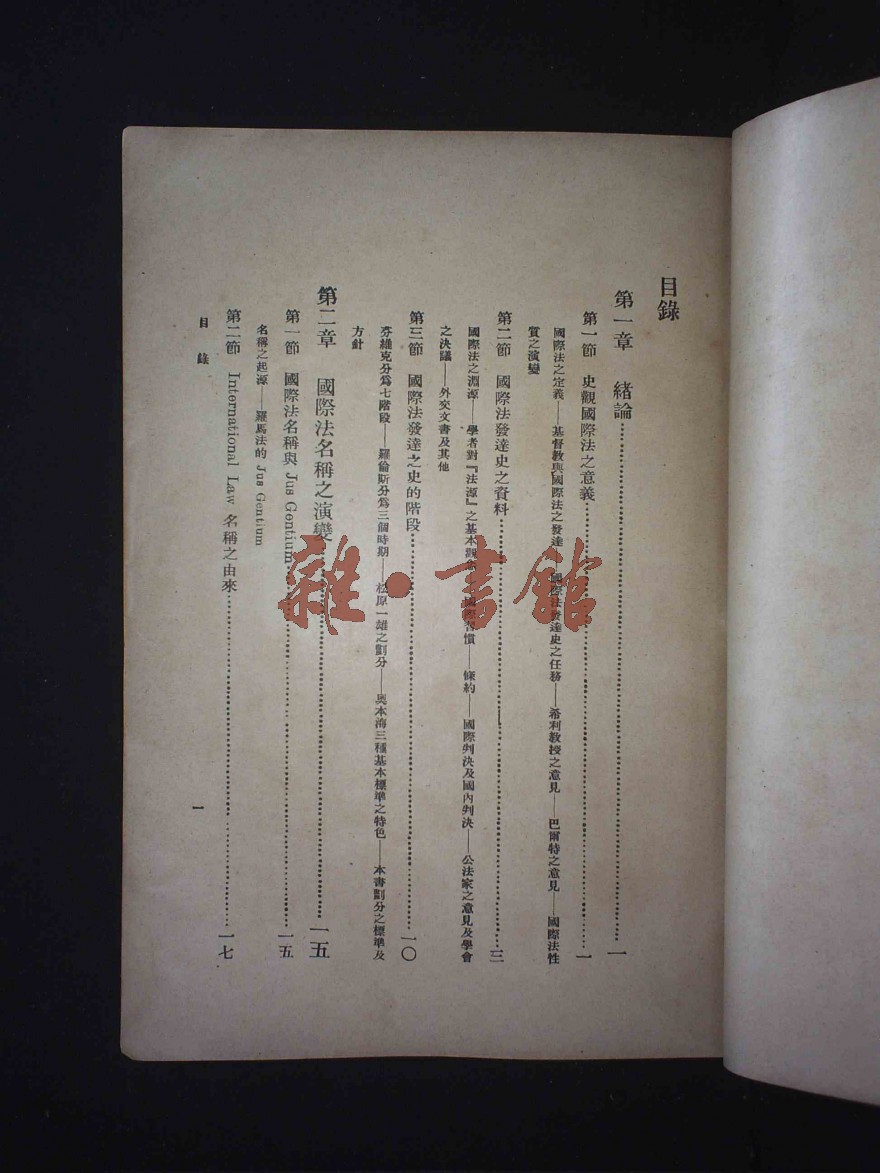 目錄
第一章 緒論……一
第一節 史觀國際法之意義……一
國際法之定義——基督教與國際法之發達——國際法發達史之任務——希利教授之意見——巴爾特之意見——國際法性
質之演變
第二節 國際法發達史之資料……三
國際法之淵源——學者對『法源』之基本觀念——國際習慣——條約——國際判決及國內判決——公法家之意見及學會
之決議——外交文書及其他
第三節 國際法發達之史的階段……一〇
芬維克分爲七階段——羅倫斯分爲三個時期——松原一雄之劃分——奧本海三種基本標準之特色——本書劃分之標準及
方針
第二章 國際法名稱之演變……一五
第一節 國際法名稱與 Jus Gentium……一五
名稱之起源——羅馬法的 Jus Gentium
第二節 International Law 名稱之由來……一七
目錄
一
雜·書館